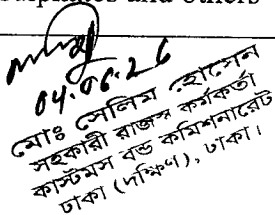 and others
04.06.26
মোঃ সেলিম হোসেন
সহকারী রাজস্ব কর্মকর্তা
কাস্টমস বন্ড কমিশনারেট
ঢাকা (দক্ষিণ), ঢাকা।